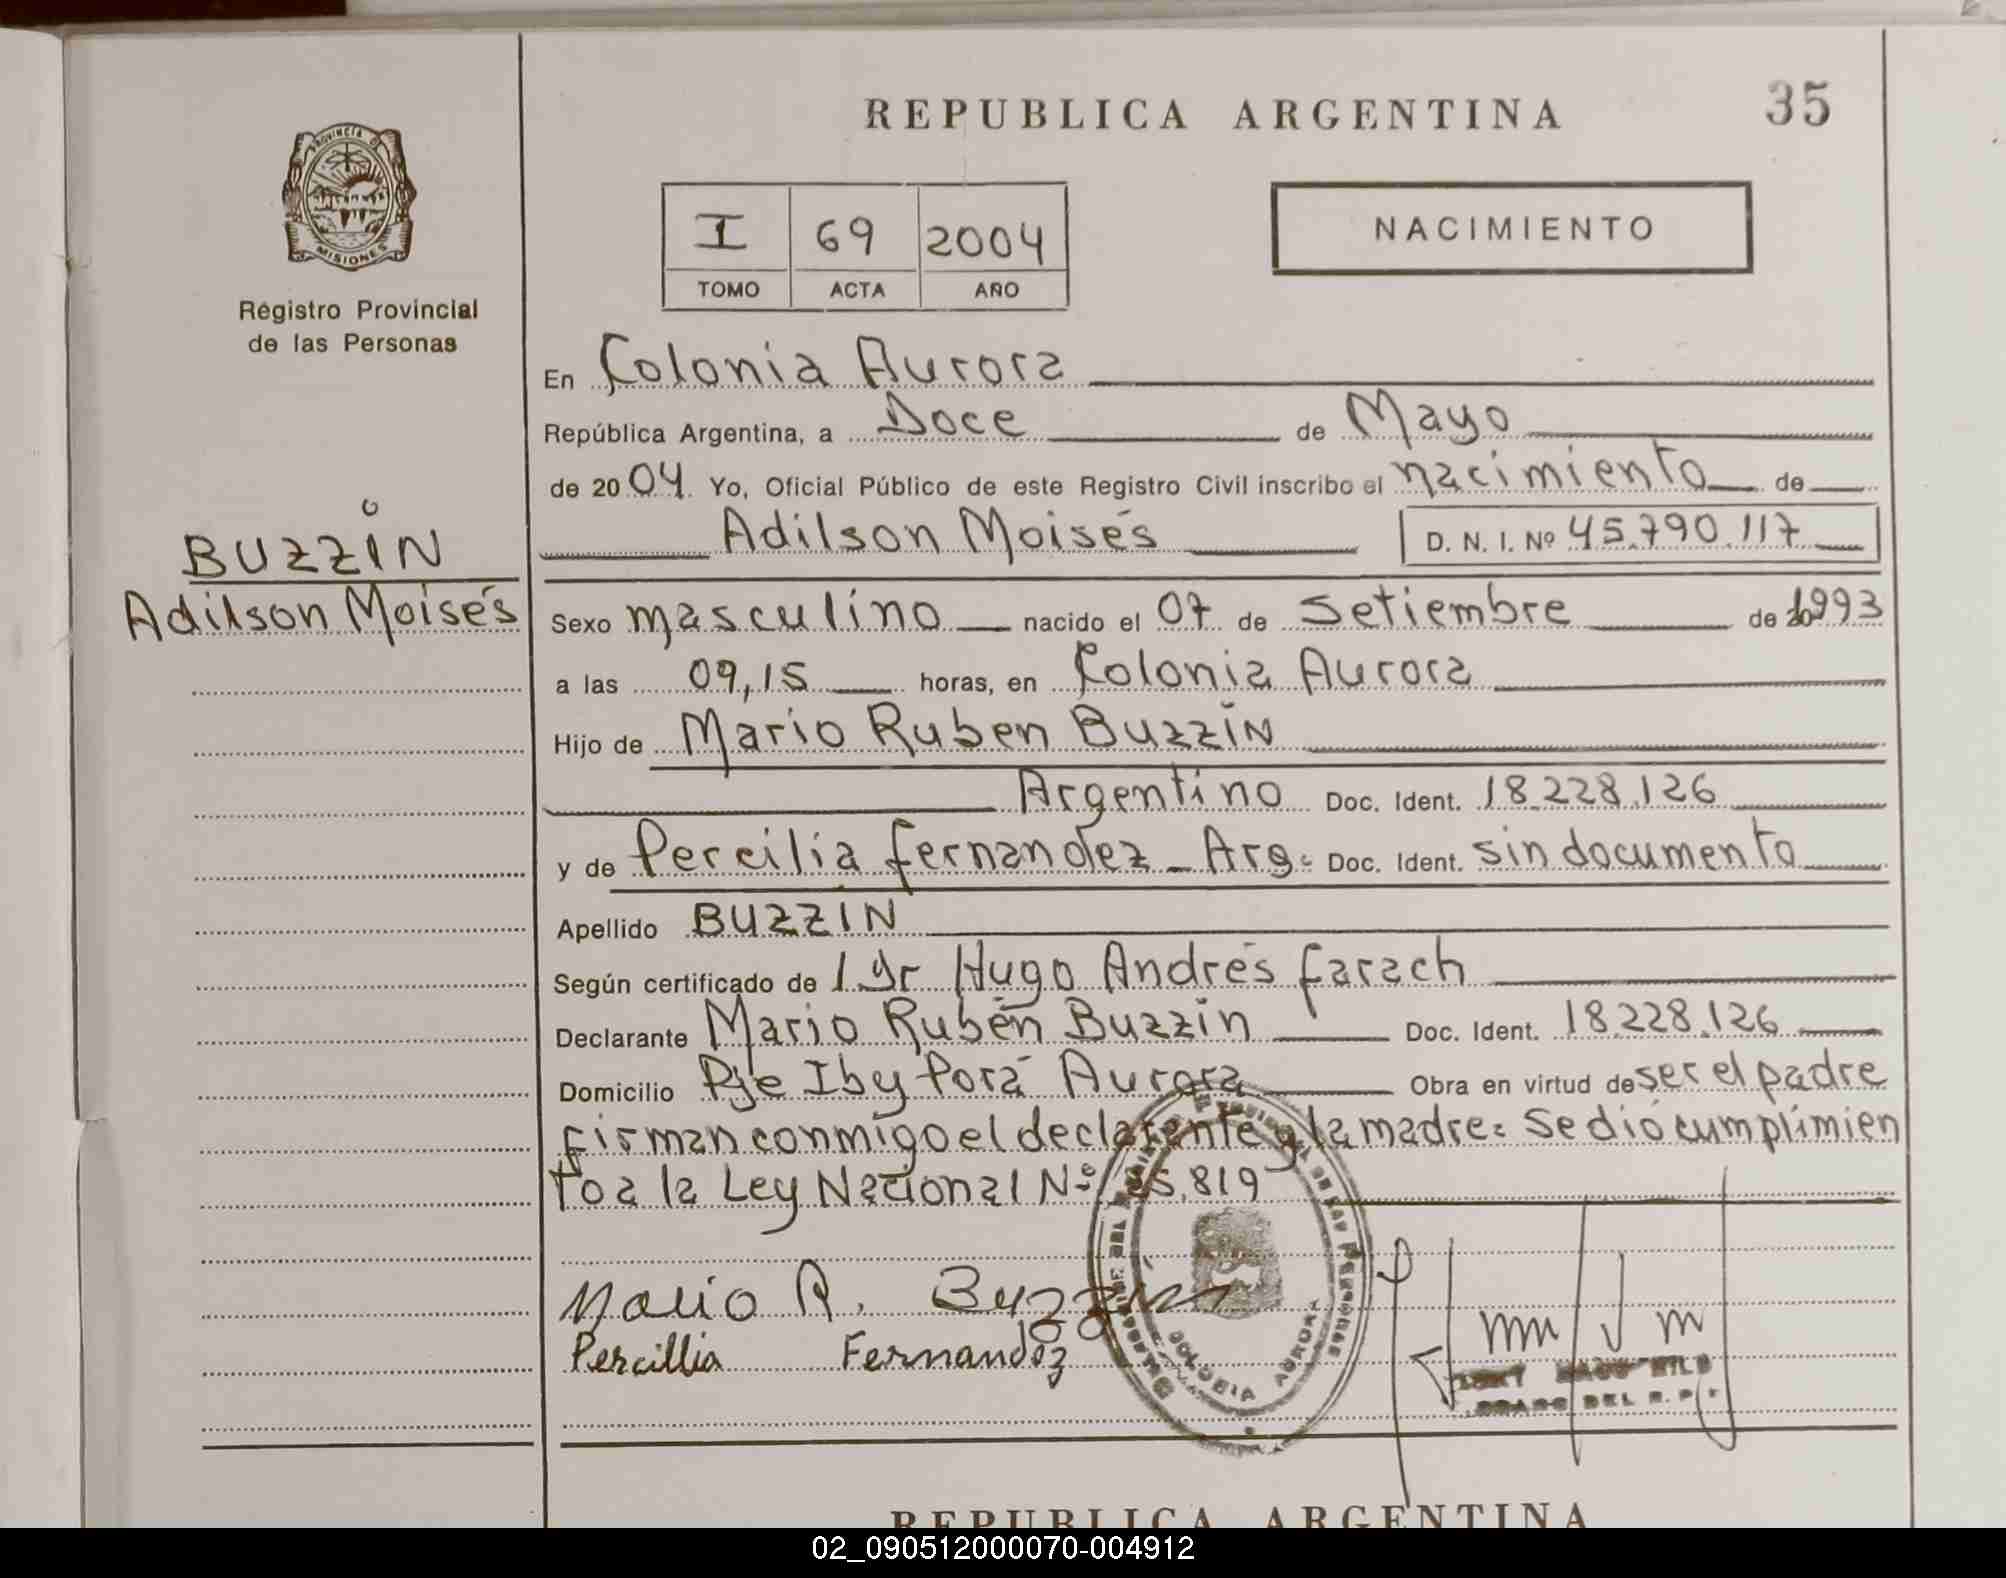 REPUBLICA ARGENTINA
35
PROVINCIA D
MISIONES
Registro Provincial
de las Personas
I 69 2004
TOMO ACTA AÑO
NACIMIENTO
En Colonia Aurora
República Argentina, a Doce de Mayo
de 2004 Yo, Oficial Público de este Registro Civil inscribo el nacimiento de
Adilson Moisés D. N. I. Nº 45.790.117
BUZZIN
Adilson Moisés
Sexo masculino nacido el 07 de Setiembre de 1993
a las 09,15 horas, en Colonia Aurora
Hijo de Mario Ruben BUZZIN
Argentino Doc. Ident. 18.228.126
y de Percilia fernandez - Arg: Doc. Ident. sin documento
Apellido BUZZIN
Según certificado de Hugo Andrés farach
Declarante Mario Rubén Buzzin Doc. Ident. 18.228.126
Domicilio Pje Iby Porá Aurora Obra en virtud de ser el padre
firman conmigo el declarante y la madre: Se dió cumplimien
to a la Ley Nacional Nº 25.819
Mario R. Buzzin
Percillia Fernandez
COLONIA AURORA
DEL R. P.
REPUBLICA ARGENTINA
02_090512000070-004912